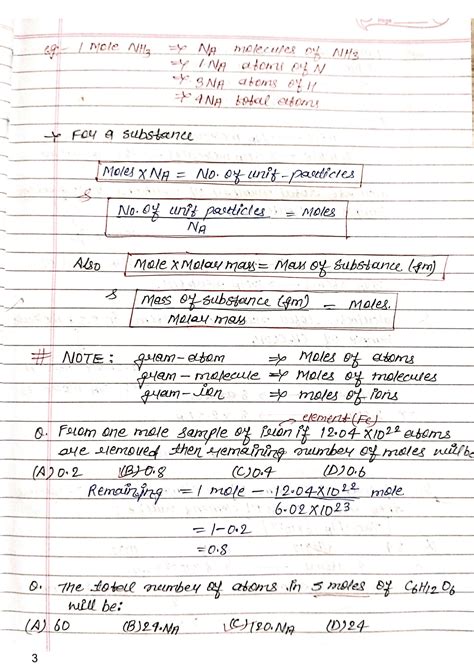 eg:- 1 mole NH3 ⇒ NA molecules of NH3
⇒ 1NA atoms of N
⇒ 3NA atoms of H
⇒ 4NA total atoms
→ For a substance
Moles × NA = No. of unit-particles
&
No. of unit particles / NA = Moles
Also Mole × Molar mass = Mass of substance (gm)
& Mass of substance (gm) / Molar mass = Moles.
# NOTE: gram-atom ⇒ Moles of atoms
gram-molecule ⇒ Moles of molecules
gram-ion ⇒ moles of ions
element (Fe)
Q. From one mole sample of iron if 12.04 × 10²² atoms
are removed then remaining number of moles will be
(A) 0.2 (B) 0.8 (C) 0.4 (D) 0.6
Remaining = 1 mole - 12.04×10²² / 6.02×10²³ mole
= 1-0.2
= 0.8
Q. The total number of atoms in 5 moles of C6H12O6
will be:
(A) 60 (B) 24.NA (C) 120.NA (D) 24
3